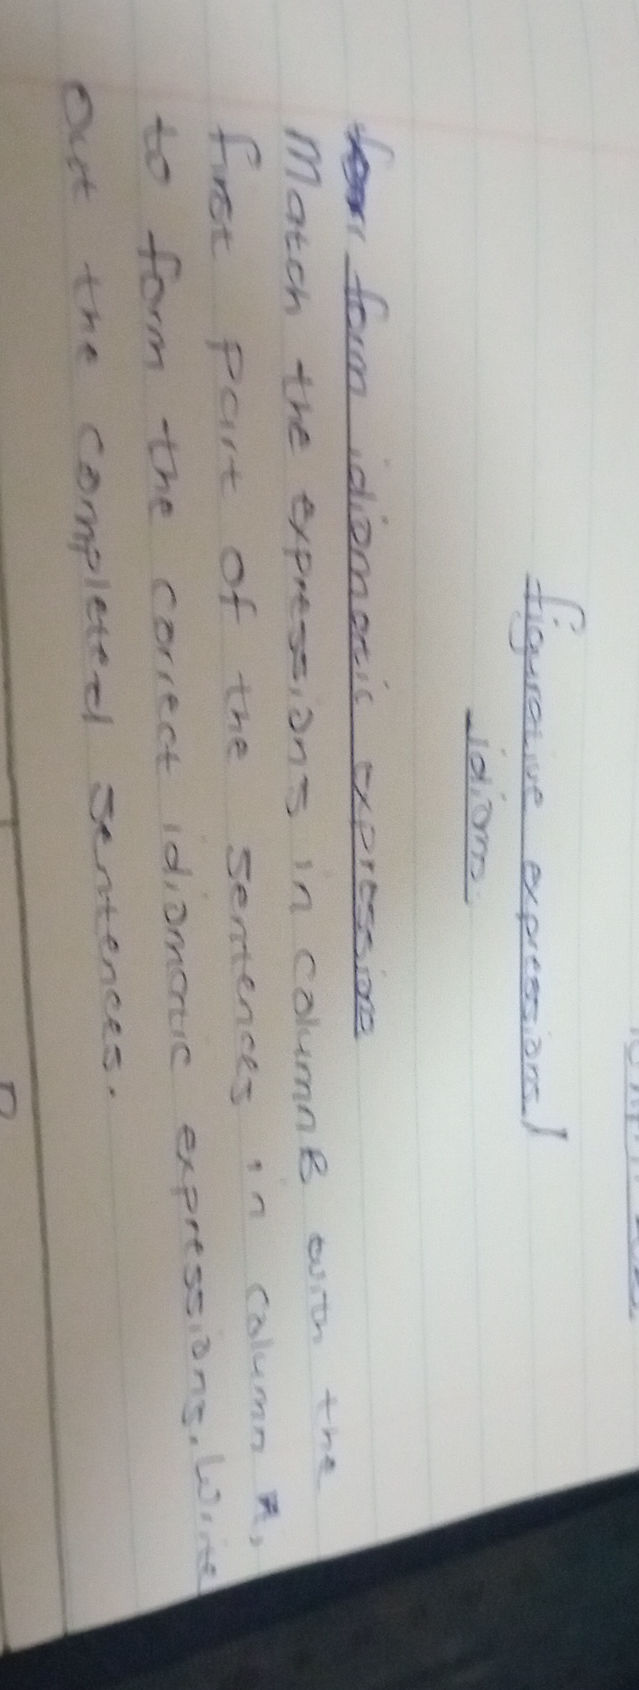 figurative expressions/
idioms.
form idiomatic expressions
Match the expressions in column B with the
first part of the sentences in column A,
to form the correct idiomatic expressions. Write
out the completed sentences.